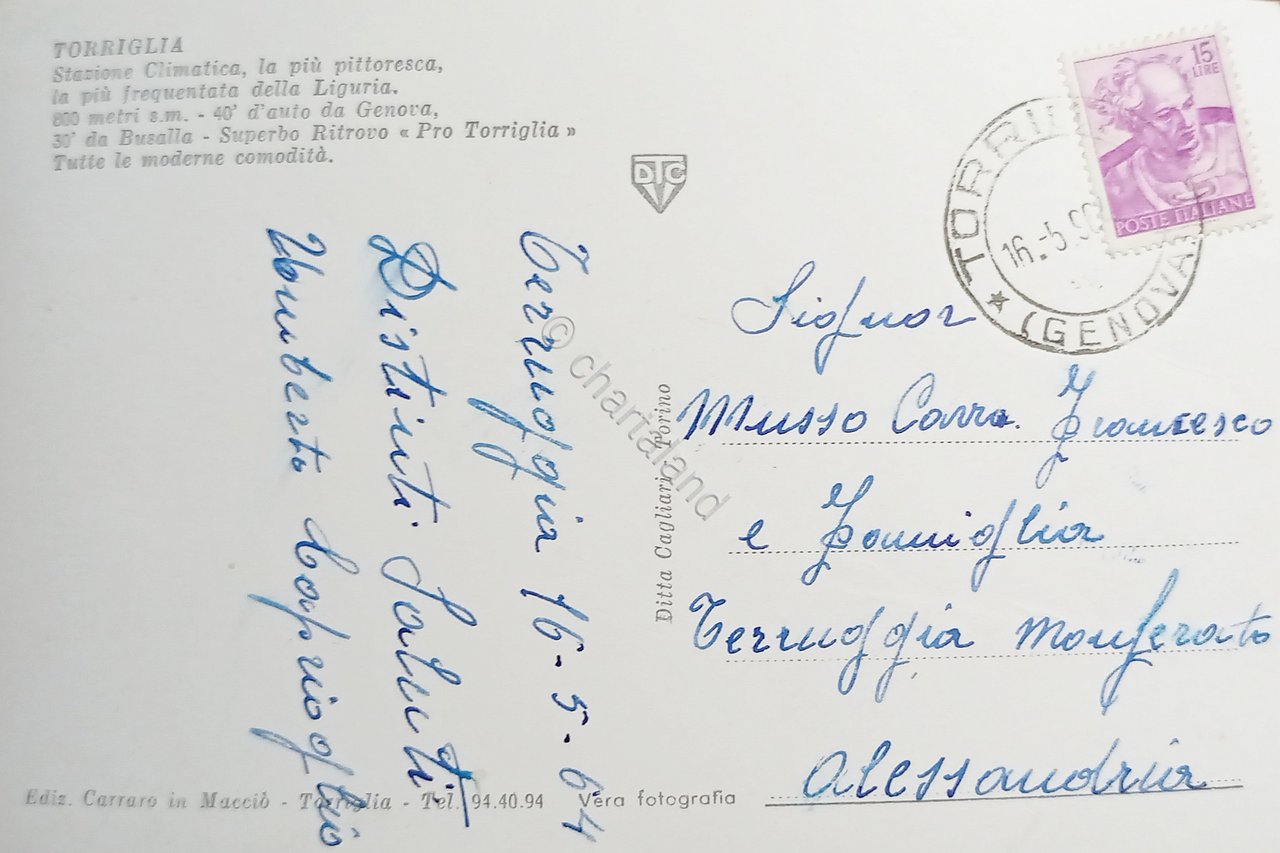 TORRIGLIA
Stazione Climatica, la più pittoresca,
la più frequentata della Liguria.
800 metri s.m. - 40' d'auto da Genova,
30' da Busalla - Superbo Ritrovo « Pro Torriglia »
Tutte le moderne comodità.
DTC
15
LIRE
POSTE ITALIANE
TORRIGLIA
16.-5.
(GENOVA)
Terruggia 16-5-64
Distinti Saluti
Umberto
Signor
Musso Carra. Francesco
e Famiglia
Terruggia Monferato
Alessandria
Ditta Cagliari, Torino
© chartaland
Ediz. Carraro in Macciò - Torriglia - Tel. 94.40.94
Vera fotografia